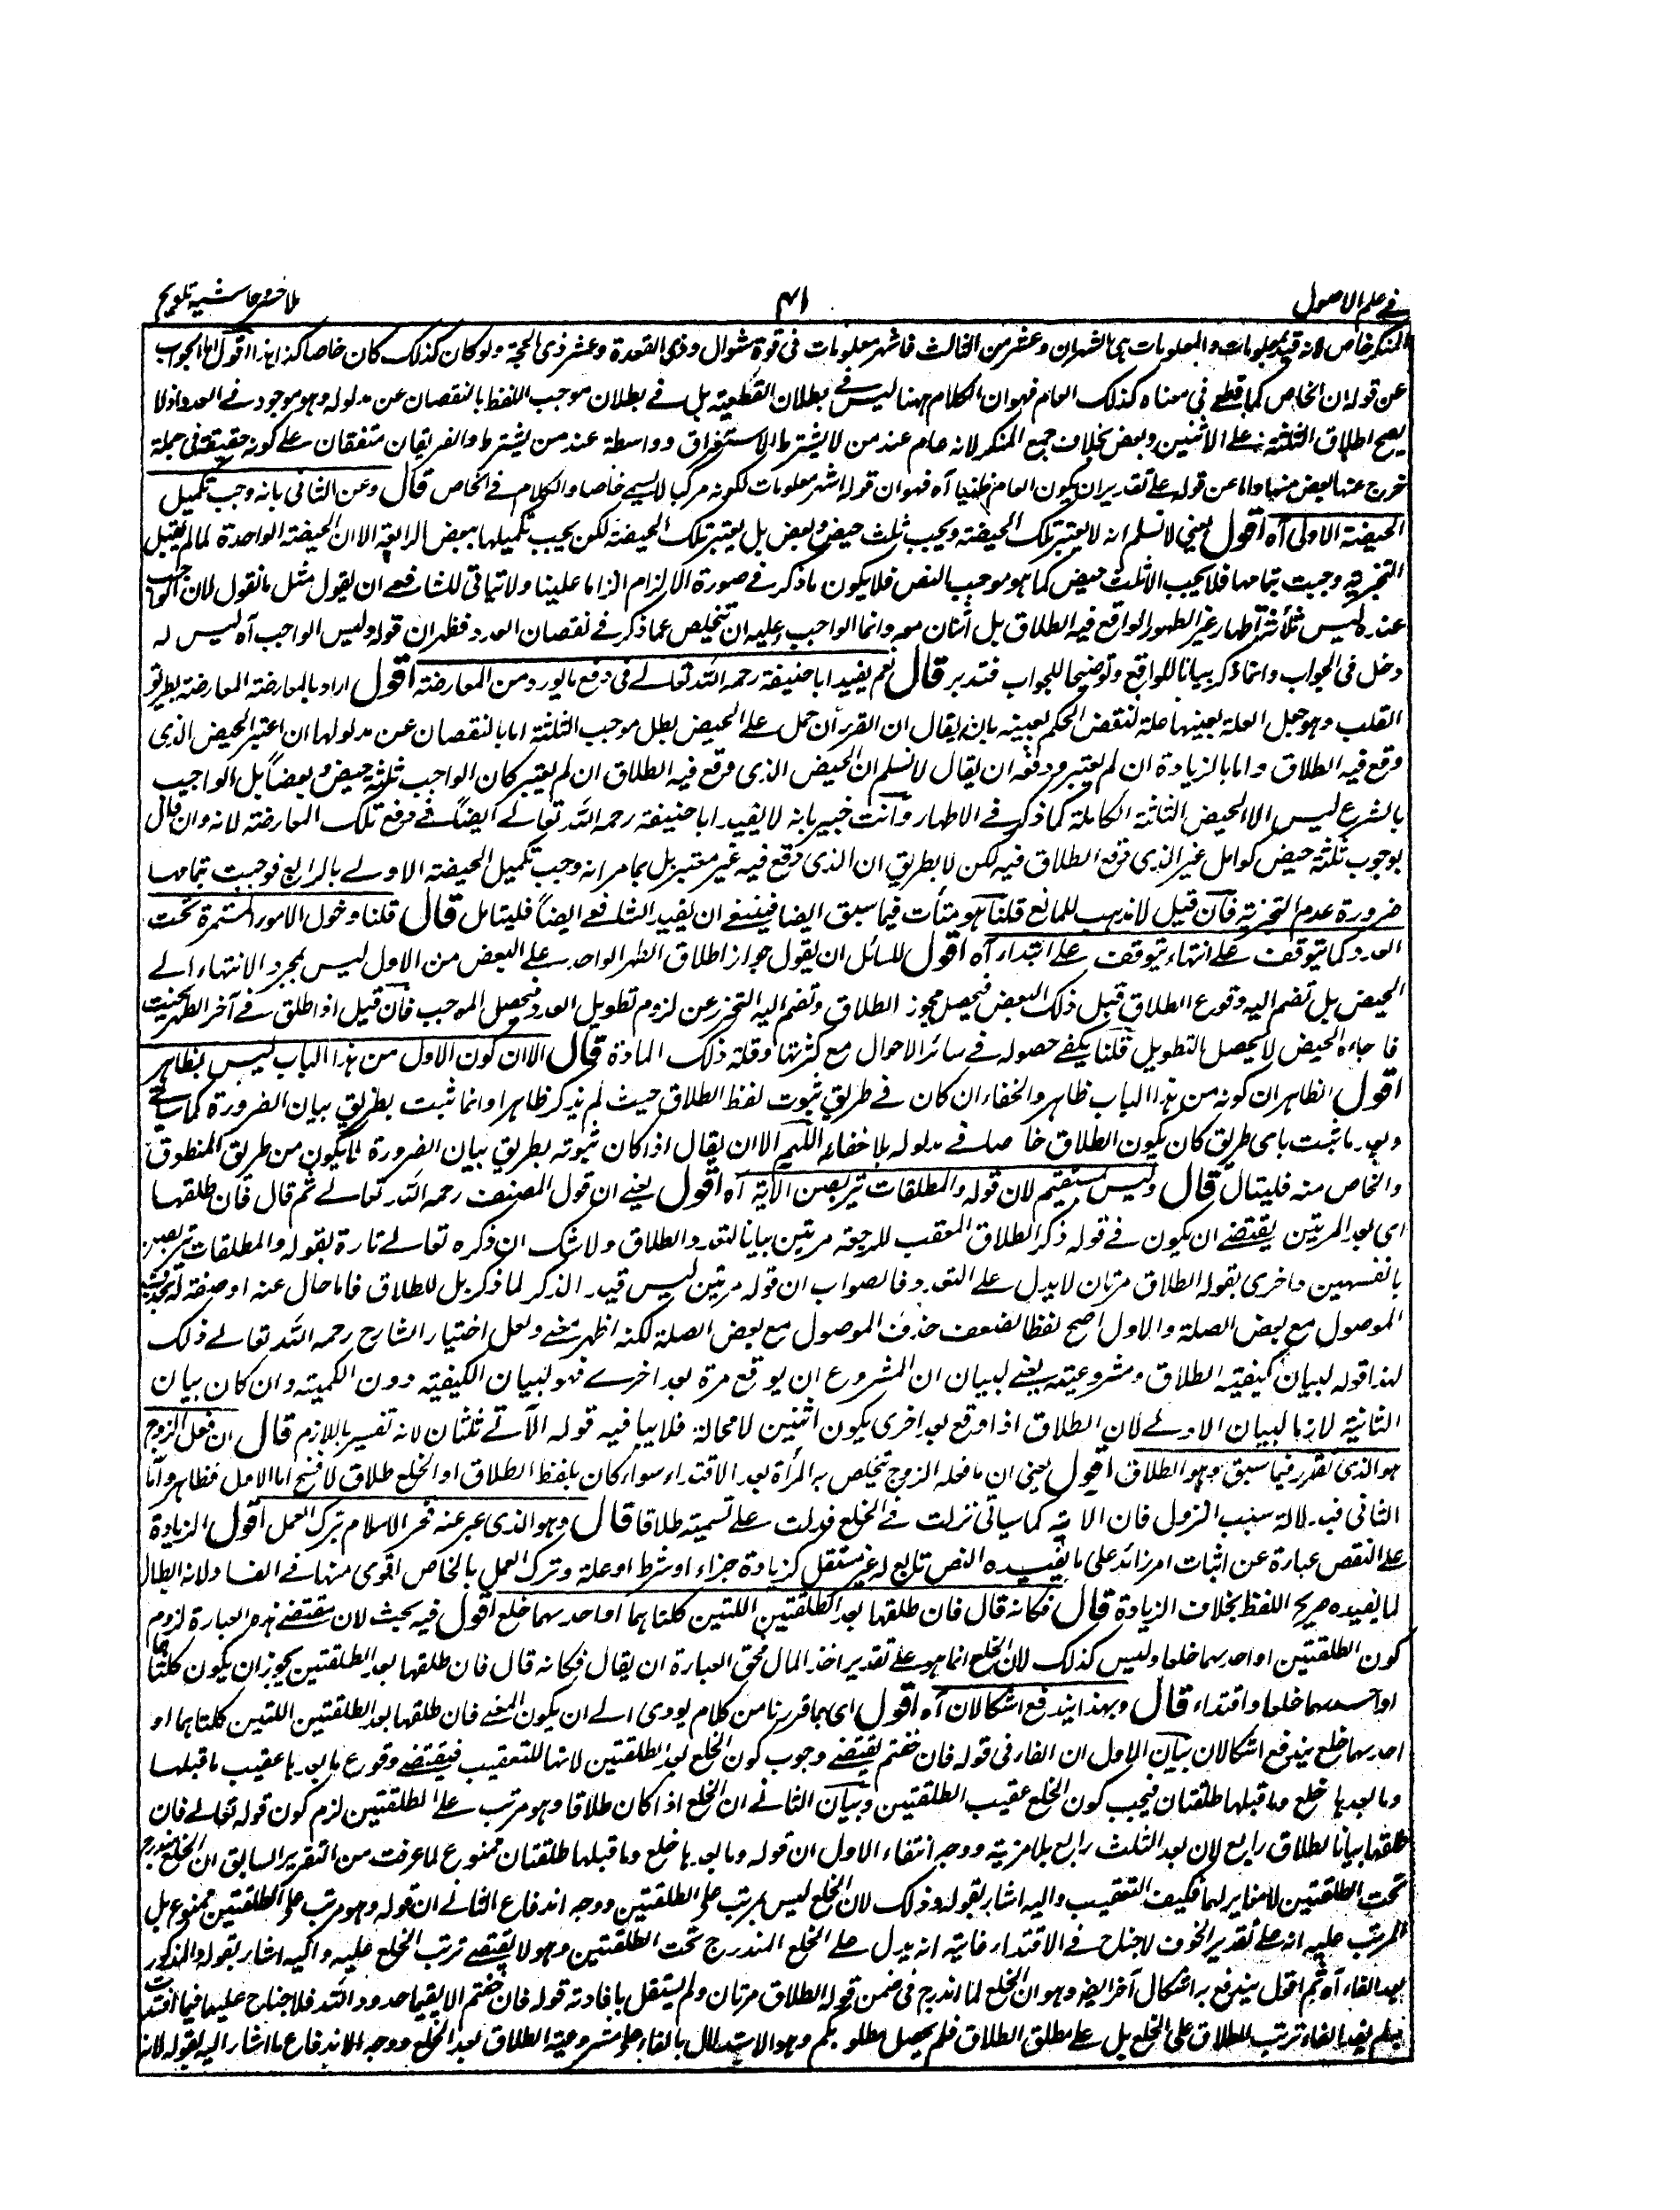 في علم الاصول
٤١
ملا خسرو حاشية تلويح
المنكر خاص لانه قيد بمعلومات والمعلومات هي الشهران وعشر من الثالث فاشهر معلومات في قوة شوال وذي القعدة وعشر ذي الحجة ولو كان كذلك كان خاصا كذا هذا اقول اما الجواب
عن قوله ان الخاص كما قطعي في معناه كذلك العام فهو ان الكلام ههنا ليس في بطلان القطعية بل في بطلان موجب اللفظ بالنقصان عن مدلوله وهو موجود في العدد اذ لا
يصح اطلاق الثلثة على الاثنين وبعض بخلاف جمع المنكر لانه عام عند من لا يشترط الاستغراق وواسطة عند من يشترط والفريقان متفقان على كونه حقيقة في جملة
خرج عنها البعض منها واما عن قوله على تقدير ان يكون العام ظنيا آه فهو ان قوله اشهر معلومات لكونه مركبا لا يسمى خاصا والكلام في الخاص قال وعن الثاني بانه وجب تكميل
الحيضة الاولى آه اقول يعني لا نسلم انه لا يعتبر تلك الحيضة ويجب ثلث حيض وبعض بل يعتبر تلك الحيضة لكن يجب تكميلها ببعض الرابعة الا ان الحيضة الواحدة لما لم يقبل
التجزية وجبت بتمامها فلا يجب الا ثلث حيض كما هو موجب النص فلا يكون ما ذكر في صورة الالزام الزاما علينا ولا يتأتى للشافعي ان يقول مثل ما نقول لان الواجب
عنده ليس ثلثة اطهار غير الطهر الواقع فيه الطلاق بل اثنان معه وانما الواجب عليه ان يتخلص عما ذكر في نقصان العدد فظهر ان قوله وليس الواجب آه ليس له
دخل في الجواب وانما ذكر بيانا للواقع وتوضيحا للجواب فتدبر قال نعم يفيد ابا حنيفة رحمه الله تعالى في دفع ما يورد من المعارضة اقول اراد بالمعارضة المعارضة بطريق
القلب وهو جعل العلة بعينها علة لنقض الحكم بعينه بان يقال ان القرء ان حمل على الحيض بطل موجب الثلثة اما بالنقصان عن مدلولها ان اعتبر الحيض الذي
وقع فيه الطلاق واما بالزيادة ان لم يعتبر ودفعه ان يقال لا نسلم ان الحيض الذي وقع فيه الطلاق ان لم يعتبر كان الواجب ثلثة حيض وبعضا بل الواجب
بالشرع ليس الا الحيض الثلثة الكاملة كما ذكر في الاطهار وانت خبير بانه لا يفيد ابا حنيفة رحمه الله تعالى ايضا في دفع تلك المعارضة لانه وان قال
بوجوب ثلثة حيض كوامل غير الذي وقع الطلاق فيه لكن لا بطريق ان الذي وقع فيه غير معتبر بل بما مر انه وجب تكميل الحيضة الاولى بالرابع فوجبت بتمامها
ضرورة عدم التجزية فان قيل لا مذهب للمانع قلنا هو متأت فيما سبق ايضا فينبغي ان يفيد الشافعي ايضا فليتامل قال قلنا دخول الامور المستمرة تحت
العدد كما يتوقف على انتهاء يتوقف على ابتداء آه اقول للسائل ان يقول جواز اطلاق الطهر الواحد على البعض من الاول ليس بمجرد الانتهاء الى
الحيض بل تضم اليه وقوع الطلاق قبل ذلك البعض فيحصل مجوز الطلاق وتضم اليه التحرز عن لزوم تطويل العدة فيحصل الموجب فان قيل اذا طلق في آخر الطهر بحيث
فاجاءه الحيض لا يحصل التطويل قلنا يكفي حصوله في سائر الاحوال مع كثرتها وقلة ذلك المادة قال الا ان كون الاول من هذا الباب ليس بظاهر
اقول الظاهر ان كونه من هذا الباب ظاهر والخفاء ان كان في طريق ثبوت لفظ الطلاق حيث لم يذكر ظاهرا وانما ثبت بطريق بيان الضرورة كما سيأتي
وبعد ما ثبت باي طريق كان يكون الطلاق خاصا في مدلوله بلا خفاء اللهم الا ان يقال اذا كان ثبوته بطريق بيان الضرورة لا يكون من طريق المنطوق
والخاص منه فليتامل قال وليس بمستقيم لان قوله والمطلقات يتربصن الآية آه اقول يعني ان قول المصنف رحمه الله تعالى ثم قال فان طلقها
اي بعد المرتين يقتضي ان يكون في قوله ذكر الطلاق المعقب للرجعة مرتين بيانا لتعدد الطلاق ولا شك ان ذكره تعالى تارة بقوله والمطلقات يتربصن
بانفسهن واخرى بقوله الطلاق مرتان لا يدل على التعدد فالصواب ان قوله مرتين ليس قيد الذكر لما ذكر بل للطلاق فاما حال عنه او صفة له بحذف
الموصول مع بعض الصلة والاول اصح لفظا لضعف حذف الموصول مع بعض الصلة لكنه اظهر معنى ولعل اختيار الشارح رحمه الله تعالى ذلك
لهذا قوله لبيان كيفية الطلاق ومشروعيته يعني لبيان ان المشروع ان يوقع مرة بعد اخرى فهو لبيان الكيفية دون الكمية وان كان بيان
الثانية لازما لبيان الاولى لان الطلاق اذا اوقع بعد اخرى يكون اثنين لا محالة فلا ينافيه قوله الآتي ثنتان لانه تفسير باللازم قال ان فعل الزوج
هو الذي تقرر فيما سبق وهو الطلاق اقول يعني ان ما فعله الزوج تخلص به المرأة بعد الافتداء سواء كان بلفظ الطلاق او الخلع طلاق لا فسخ اما الاول فظاهر واما
الثاني فبدلالة سبب النزول فان الآية كما سيأتي نزلت في الخلع فدلت على تسميته طلاقا قال وهو الذي عبر عنه فخر الاسلام بترك العمل اقول الزيادة
على النقص عبارة عن اثبات امر زائد على ما يفيده النص تابع له غير مستقل كزيادة جزاء او شرط او علة وترك العمل بالخاص اقوى منها في الفساد لانه ابطال
لما يفيده صريح اللفظ بخلاف الزيادة قال فكانه قال فان طلقها بعد الطلقتين اللتين كلتاهما او احدهما خلع اقول فيه بحث لان مقتضى هذه العبارة لزوم
كون الطلقتين او احدهما خلعا وليس كذلك لان الخلع انما هو على تقدير اخذ المال فحق العبارة ان يقال فكانه قال فان طلقها بعد الطلقتين يجوز ان يكون كلتاهما
او احدهما خلعا وافتداء قال وبهذا يندفع اشكالان آه اقول اي بما قررنا من كلام يؤدي الى ان يكون المعنى فان طلقها بعد الطلقتين اللتين كلتاهما او
احدهما خلع يندفع اشكالان بيان الاول ان الفاء في قوله فان خفتم يقتضي وجوب كون الخلع بعد الطلقتين لانها للتعقيب فيقتضي وقوع ما بعدها عقيب ما قبلها
وما بعدها خلع وما قبلها طلقتان فيجب كون الخلع عقيب الطلقتين وبيان الثاني ان الخلع اذا كان طلاقا وهو مرتب على الطلقتين لزم كون قوله تعالى فان
طلقها بيانا لطلاق رابع لان بعد الثلث رابع بلا مزية ووجه انتفاء الاول ان قوله وما بعدها خلع وما قبلها طلقتان ممنوع لما عرفت من التقرير السابق ان الخلع مندرج
تحت الطلقتين لا مغاير لهما فكيف التعقيب واليه اشار بقوله وذلك لان الخلع ليس بمرتب على الطلقتين ووجه اندفاع الثاني ان قوله وهو مرتب على الطلقتين ممنوع بل
المرتب عليه انه على تقدير الخوف لا جناح في الافتداء غايته انه يدل على الخلع المندرج تحت الطلقتين وهو لا يقتضي ترتب الخلع عليه واليه اشار بقوله والمذكور
بعد الفاء آه ثم اقول يندفع به اشكال آخر ايضا وهو ان الخلع لما اندرج في ضمن قوله الطلاق مرتان ولم يستقل بافادته قوله فان خفتم الا يقيما حدود الله فلا جناح عليهما فيما افتدت
به لم يفد الفاء ترتب للطلاق على الخلع بل على مطلق الطلاق فلم يحصل مطلوبكم وهو الاستدلال بالفاء على مشروعية الطلاق بعد الخلع ووجه الاندفاع ما اشار اليه بقوله لانه